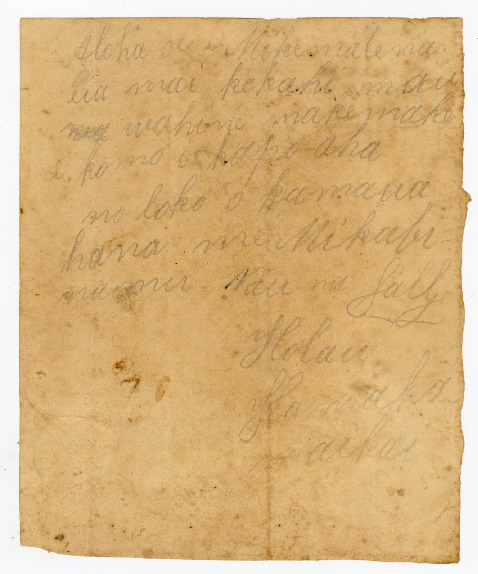 Aloha oe Mikemalena
Eia mai kekahi mau
wahine makemake
e komo i kapo aha
no loko o kamaua
hana me Mikabi
naimui Nau na Sally
Holau
Kamaka
maikai